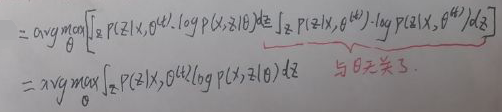 = argmax_θ [∫_z P(z|x,θ^(t))·log P(x,z|θ)dz ∫_z P(z|x,θ^(t))·log P(z|x,θ^(t))dz]
与θ无关了.
= argmax_θ ∫_z P(z|x,θ^(t)) log P(x,z|θ) dz